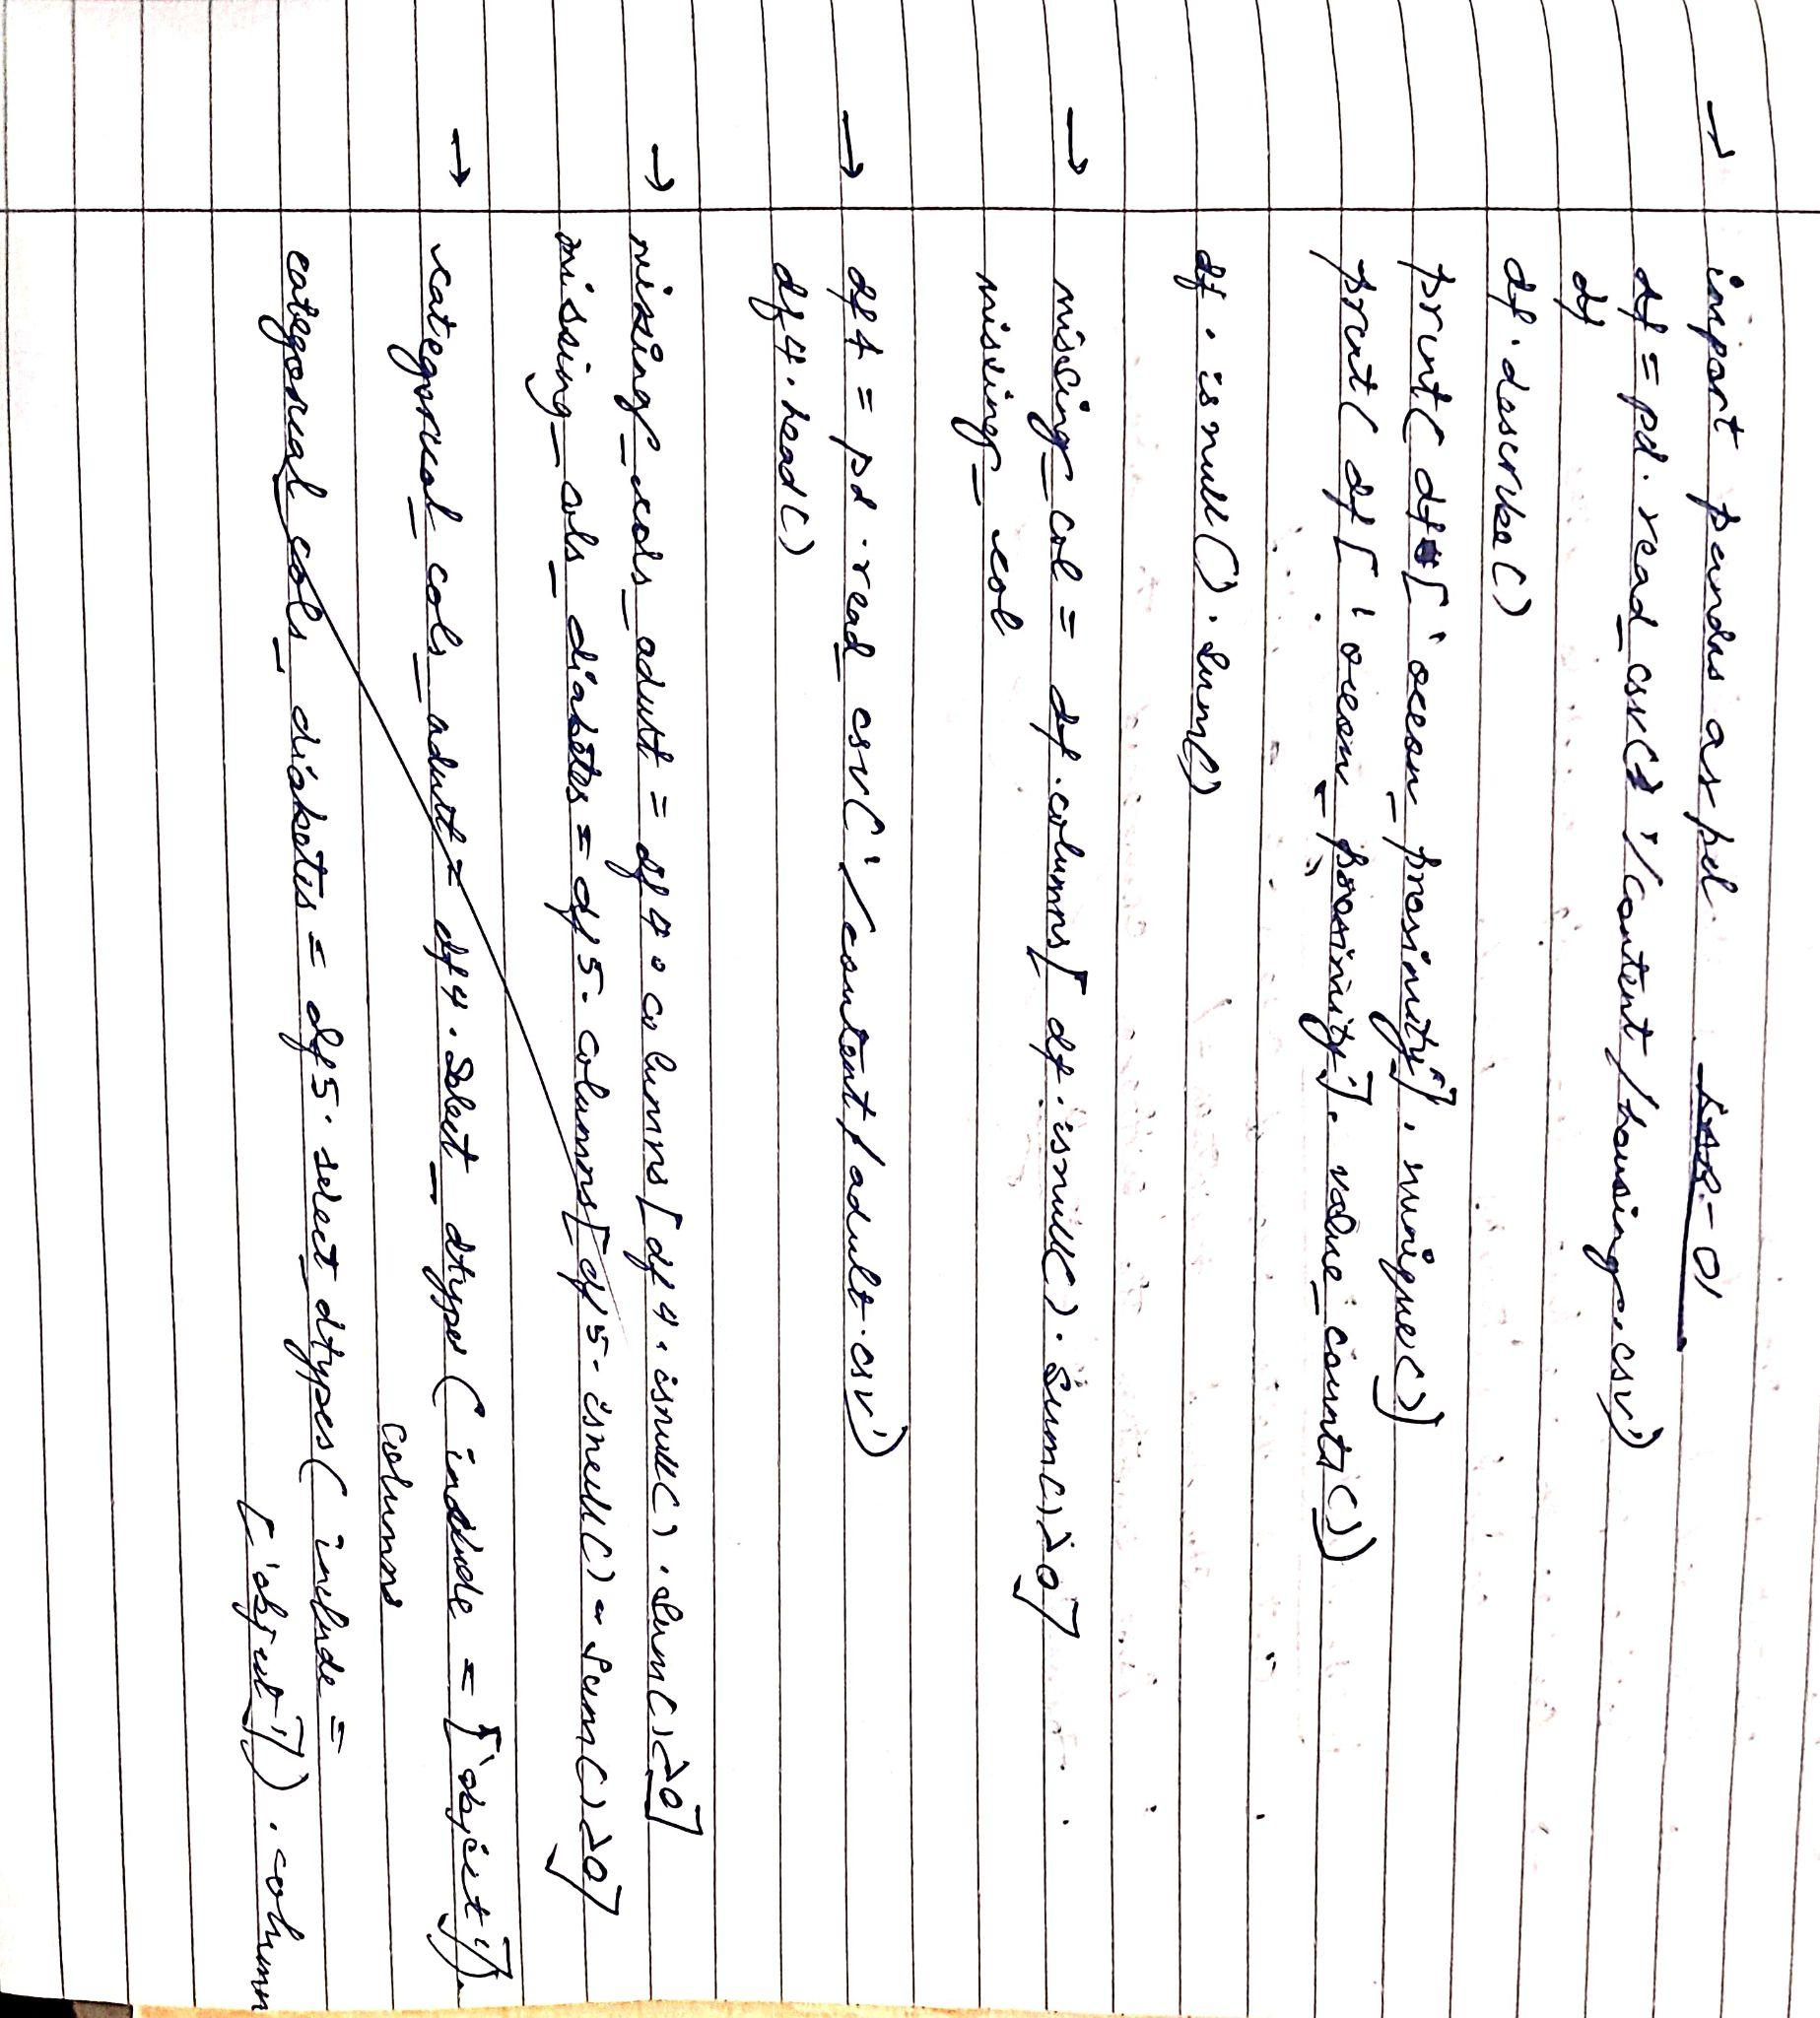 → import pandas as pd. LAB-01
df = pd.read_csv('/content/housing.csv')
df
df.describe()
print(df['ocean_proximity'].nunique())
print(df['ocean_proximity'].value_counts())
df.isnull().sum()
→ missing_col = df.columns[df.isnull().sum()>0]
missing_col
→ df4 = pd.read_csv('/content/adult.csv')
df4.head()
→ missing_cols_adult = df4.columns[df4.isnull().sum()>0]
missing_cols_diabetes = df5.columns[df5.isnull().sum()>0]
→ categorical_cols_adult = df4.select_dtypes(include = ['object']).
columns
categorical_cols_diabetes = df5.select_dtypes(include =
['object']).column